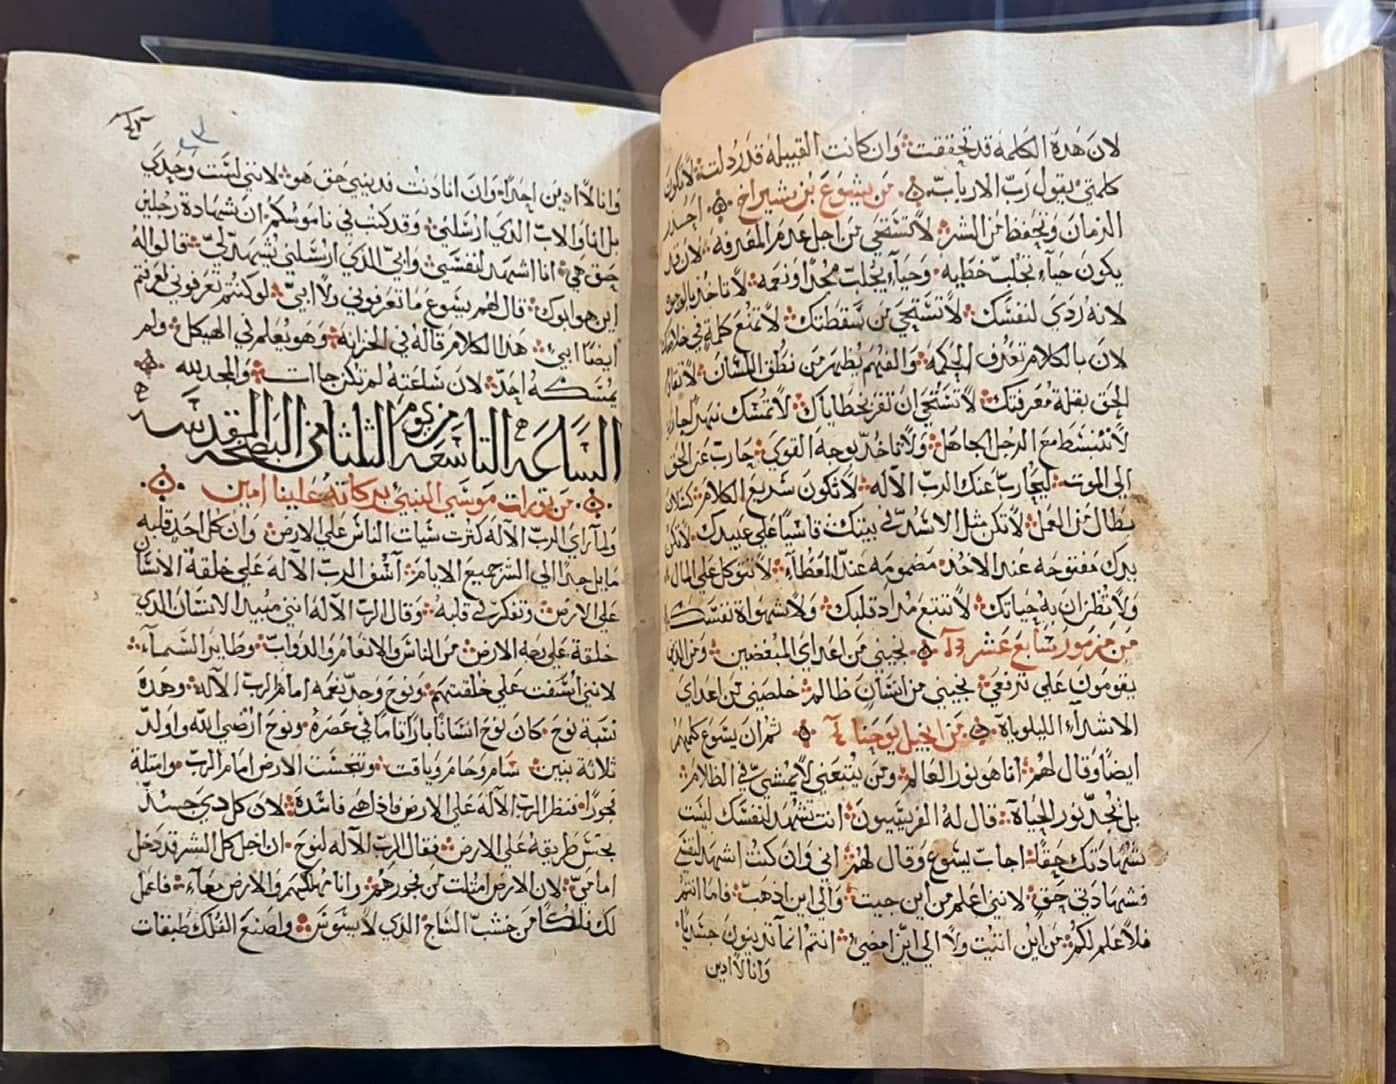 لان هده الكلمه قد تحققت وان كانت القبيله قد ردلت لا تكون
كلمتي يقول رب الارباب من يشوع بن شيراخ احدر
الزمان وتحفظ من الشر لا تستحي من اجل عدم المعرفه لان قد
يكون حيآء يجلب خطيه وحيآء يجلب مجدا ونعمه لا تاخد بالوجوه
لانه ردى لنفسك لا تستحي من سقطتك لا تمنع كلمة في خلاصك
لان بالكلام تعرف الحكمه والفهم يظهر من نطق اللسان لا تقاوم
الحق بقلة معرفتك لا تستحي ان تقر بخطاياك لا تمسك نهرا جاري
لا تنبسط مع الرجل الجاهل ولا تاخد بوجه القوي حارب عن الحق
الي الموت ليحارب عنك الرب الآله لا تكون سريع الكلام كسلان
بطال من العمل لا تكن مثل الاسد في بيتك قاسيا علي عبيدك لا تكن
يدك مفتوحه عند الاخد مضمومه عند العطآء لا تتوكل علي المال
ولا تظن ان به حياتك لا تتبع مراد قلبك ولا شهواة نفسك
من مزمور سابع عشر نجيني من اعداي المبغضين ومن الدين
يقومون علي ترفعني نجيني من انسان ظالم خلصني من اعداي
الاشدآء الليلوياة من انجيل يوحنا ثم ان يسوع كلمهم
ايضا وقال لهم انا هو نور العالم ومن يتبعني لا يمشي في الظلام
بل يجد نور الحياة قال له الفريسيون انت تشهد لنفسك ليست
شهادتك حقا اجاب يسوع وقال لهم اني وان كنت اشهد لنفسي
فشهادتي حق لانني اعلم من اين جيت والي اين ادهب فاما انتم
فلا علم لكم من اين اتيت ولا الي اين امضي انتم انما تدينون جسديا
وانا لا ادين
وانا لا ادين احدا وان انا دنت فديني حق هو لانني لست وحدي
بل انا والاب الدي ارسلني وقد كتب في ناموسكم ان شهادة رجلين
حق هي انا اشهد لنفسي وابي الدي ارسلني يشهد لي قالوا له
اين هو ابوك قال لهم يسوع ما تعرفوني ولا ابي لو كنتم تعرفوني لعرفتم
ايضا ابي هذا الكلام قاله في الخزانه وهو يعلم في الهيكل ولم
يمسكه احد لان ساعته لم تكن جاات والمجد لله
الساعه التاسعه من يوم الثلثا من البصخه المقدسه
من تورات موسي النبي بركاته علينا امين
ولما راي الرب الآله كثرت سيات الناس علي الارض وان كل احد قلبه
مايل جدا الي الشر جميع الايام آسف الرب الآله علي خلقة الانسان
علي الارض وتفكر في قلبه وقال الرب الآله انني مبيد الانسان الدي
خلقة علي وجه الارض من الناس والانعام والدواب وطاير السمآء
لانني اسفت علي خلقتهم ونوح وجد نعمه امام الرب الآله وهده
نسبة نوح كان نوح انسانا بارا تاما في عصره ونوح ارضي الله واولد
ثلاثة بنين سام وحام وياقت وتنجست الارض امام الرب وامتلة
فجورا فنظر الرب الآله علي الارض فاذا هي فاسدة لان كل دي جسد
نجس طريقه علي الارض فقال الرب الآله لنوح ان اجل كل البشر قد دخل
امامي لان الارض امتلت من فجورهم وانا مهلكهم والارض معآء فاعمل
لك فلكا من خشب الساج الدي لا يسوس واصنع الفلك طبقات